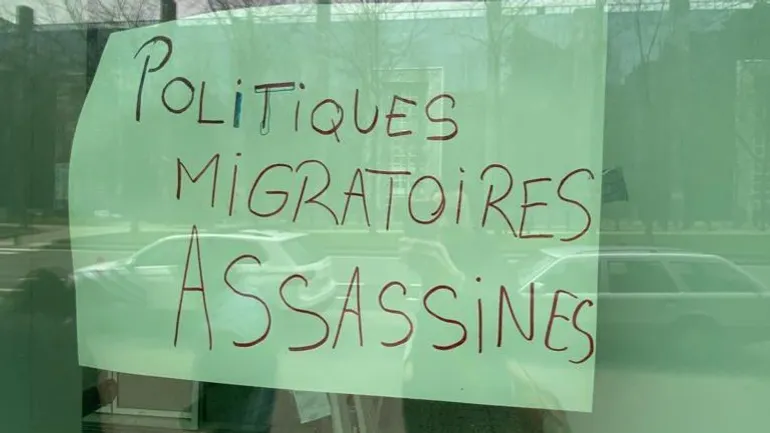 POLITIQUES
MIGRATOIRES
ASSASSINES